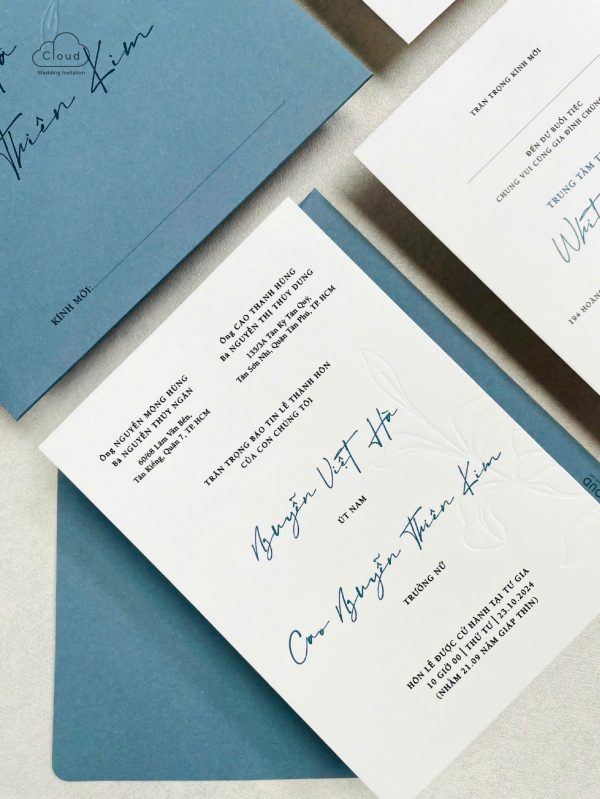 Cloud
Wedding Invitation
Hà
Thiên Kim
KÍNH MỜI:
TRÂN TRỌNG KÍNH MỜI
ĐẾN DỰ BUỔI TIỆC
CHUNG VUI CÙNG GIA ĐÌNH CHÚNG
TRUNG TÂM
194 HOÀNG
Ông NGUYỄN MỘNG HÙNG
Bà NGUYỄN THỤY NGÂN
60/68 Lâm Văn Bền,
Tân Kiểng, Quận 7, TP. HCM
Ông CAO THANH HÙNG
Bà NGUYỄN THỊ THÙY DUNG
135/3A Tân Kỳ Tân Quý,
Tân Sơn Nhì, Quận Tân Phú, TP. HCM
TRÂN TRỌNG BÁO TIN LỄ THÀNH HÔN
CỦA CON CHÚNG TÔI
Nguyễn Việt Hà
ÚT NAM
Cao Nguyễn Thiên Kim
TRƯỞNG NỮ
HÔN LỄ ĐƯỢC CỬ HÀNH TẠI TƯ GIA
10 GIỜ 00 | THỨ TƯ | 23.10.2024
(NHẰM 21.09 NĂM GIÁP THÌN)